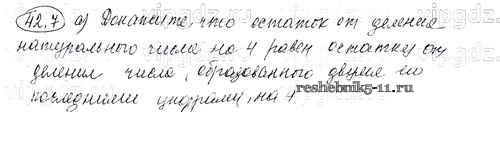 42.7 а) Докажите, что остаток от деления
натурального числа на 4 равен остатку от
деления числа, образованного двумя его
последними цифрами, на 4.
reshebnik5-11.ru